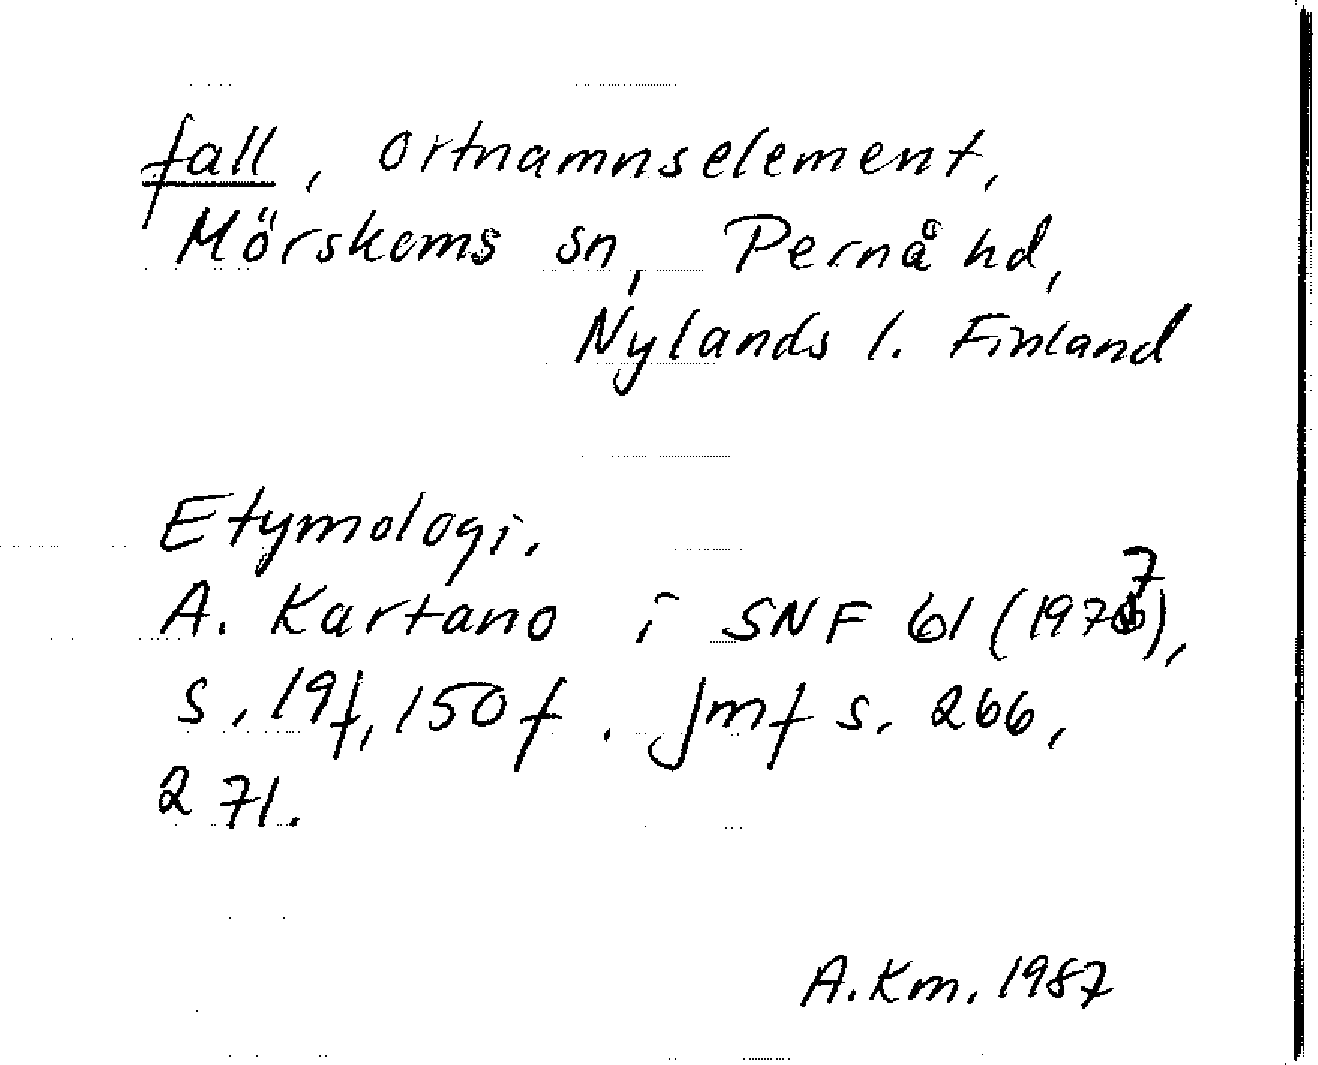 fall, ortnamnselement,
Mörskoms sn, Pernå hd,
Nylands l. Finland
Etymologi.
A. Kartano i SNF 61 (1977),
s. 19f, 150f. Jmf s. 266,
271.
A.Km. 1987